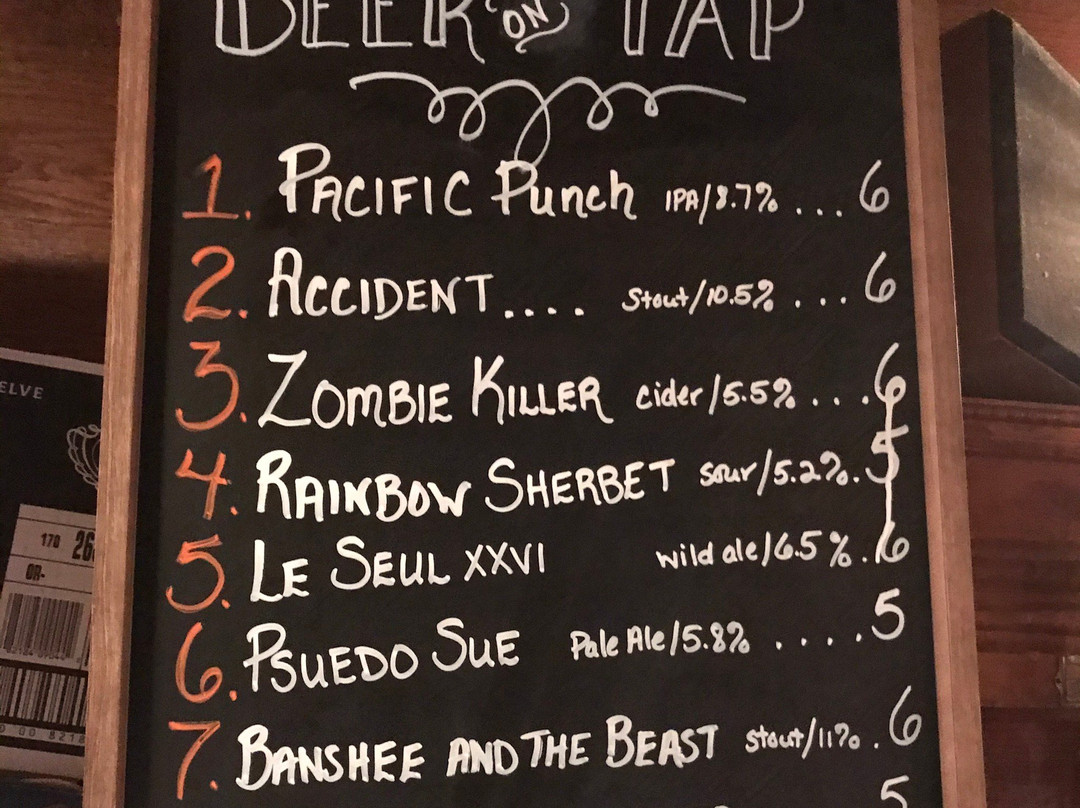 BEER ON TAP
1. PACIFIC Punch IPA/8.7% ... 6
2. ACCIDENT.... Stout/10.5% ... 6
3. ZOMBIE KILLER cider/5.5% ... 6
4. RAINBOW SHERBET sour/5.2%. 5
5. LE SEUL XXVI wild ale/6.5%. 6
6. PSUEDO SUE Pale Ale/5.8% .... 5
7. BANSHEE AND THE BEAST stout/11% . 6
5
ELVE
170 26
OR-